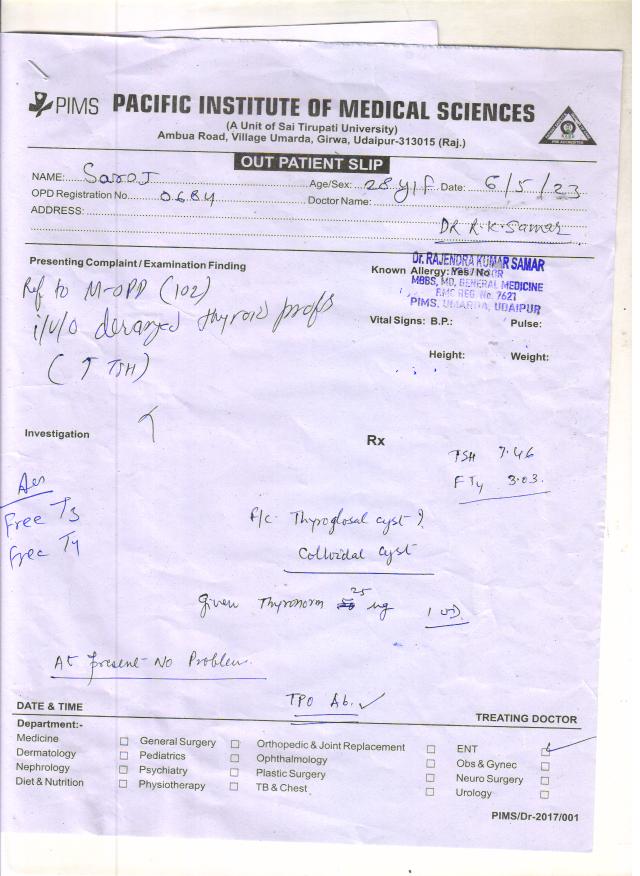 PIMS PACIFIC INSTITUTE OF MEDICAL SCIENCES
(A Unit of Sai Tirupati University)
Ambua Road, Village Umarda, Girwa, Udaipur-313015 (Raj.)
OUT PATIENT SLIP
NAME: Saroj Age/Sex: 28 y/F Date: 6/5/23
OPD Registration No. 0684 Doctor Name:
ADDRESS: DR R.K. Samar
Presenting Complaint / Examination Finding
Known Allergy: Yes / No
Dr. RAJENDRA KUMAR SAMAR
MBBS, MD, GENERAL MEDICINE
RMC REG. No. 7621
PIMS, UMARDA, UDAIPUR
Ref to M-OPD (102)
i/v/o deranged thyroid
(↑ TSH)
Vital Signs: B.P.: Pulse:
Height: Weight:
Investigation
Rx
TSH 7.46
FT4 3.03
Adv
Free T3
Free T4
Thyroglosal cyst ?
Colloidal cyst
Given Thyronorm 25 1 OD
At present - No Problem.
TPO Ab. ✓
DATE & TIME TREATING DOCTOR
Department:-
Medicine General Surgery Orthopedic & Joint Replacement ENT
Dermatology Pediatrics Ophthalmology Obs & Gynec
Nephrology Psychiatry Plastic Surgery Neuro Surgery
Diet & Nutrition Physiotherapy TB & Chest Urology
PIMS/Dr-2017/001